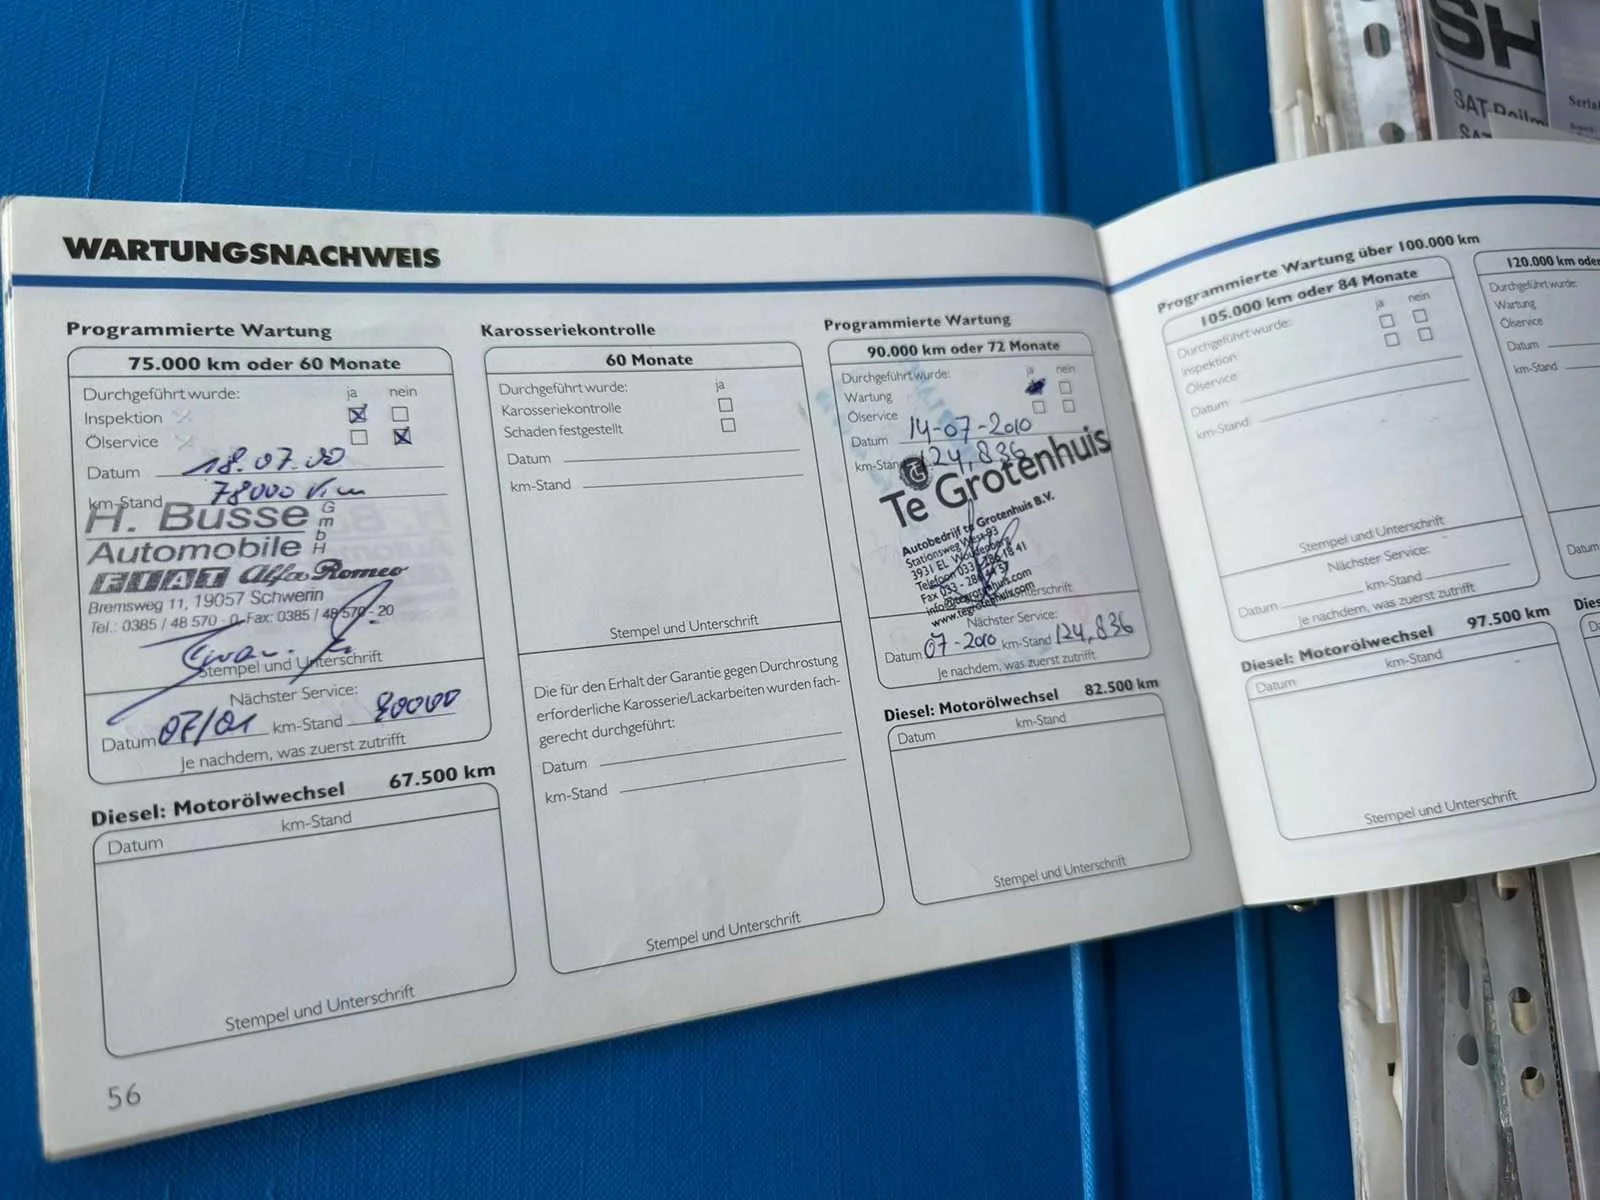 WARTUNGSNACHWEIS
Programmierte Wartung
75.000 km oder 60 Monate
Durchgeführt wurde: ja nein
Inspektion
Ölservice
Datum 18.07.00
km-Stand 78000 km
H. Busse GmbH
Automobile
FIAT Alfa Romeo
Bremsweg 11, 19057 Schwerin
Tel.: 0385 / 48 570 - 0, Fax: 0385 / 48 570 - 20
Stempel und Unterschrift
Nächster Service:
Datum 07/01 km-Stand 90000
Je nachdem, was zuerst zutrifft
Diesel: Motorölwechsel 67.500 km
Datum km-Stand
Stempel und Unterschrift
56
Karosseriekontrolle
60 Monate
Durchgeführt wurde: ja
Karosseriekontrolle
Schaden festgestellt
Datum
km-Stand
Stempel und Unterschrift
Die für den Erhalt der Garantie gegen Durchrostung
erforderliche Karosserie/Lackarbeiten wurden fach-
gerecht durchgeführt:
Datum
km-Stand
Stempel und Unterschrift
Programmierte Wartung
90.000 km oder 72 Monate
Durchgeführt wurde: ja nein
Wartung
Ölservice
Datum 14-07-2010
km-Stand 124,836
Te Grotenhuis
Autobedrijf te Grotenhuis B.V.
Stationsweg West 93
3931 EL Woudenberg
Telefoon 033 - 286 18 41
Fax 033 - 286
info@tegrotenhuis.com
www.tegrotenhuis.com
Nächster Service:
Datum 07-2010 km-Stand 124,836
Je nachdem, was zuerst zutrifft
Diesel: Motorölwechsel 82.500 km
Datum km-Stand
Stempel und Unterschrift
Programmierte Wartung über 100.000 km
105.000 km oder 84 Monate
Durchgeführt wurde: ja nein
Inspektion
Ölservice
Datum
km-Stand
Stempel und Unterschrift
Nächster Service:
Datum km-Stand
Je nachdem, was zuerst zutrifft
Diesel: Motorölwechsel 97.500 km
Datum km-Stand
Stempel und Unterschrift
120.000 km oder
Durchgeführt wurde:
Wartung
Ölservice
Datum
km-Stand
Datum
SH
SAT